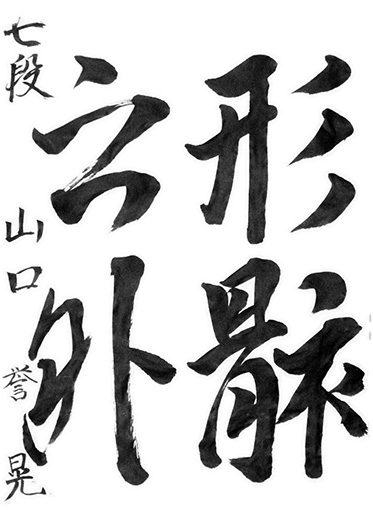 形骸
之外
七段 山口誉晃